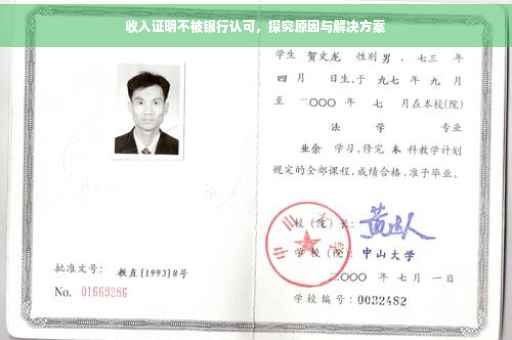 收入证明不被银行认可，探究原因与解决方案
学生 贺文龙 性别 男，七三 年
四 月 日生，于 九七 年 九 月
至 二〇〇〇 年 七 月在本校(院)
法 学 专业
业余 学习，修完 本 科教学计划
规定的全部课程，成绩合格，准予毕业。
校（院）长：
学 校（院）： 中山大学
二〇〇〇 年 七 月 一 日
批准文号： 教直 [1993] 8号
No. 01669286
学校编号：0032482